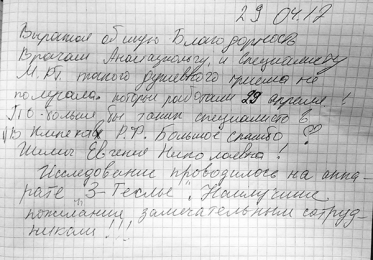 29 04.17
Выражаю общую Благодарность
Врачам Анастазиологу, и Специалисту
М.РТ такого душевного приема не
получала. которые работали 29 апреля!
По-больше бы таких специалистов
В Клиниках Р.Ф. Большое спасибо ♡
Евгения Николаевна!
Исследование проводилось на аппа-
рате "3-Теслы". Наилучшие
пожелания замечательным сотруд-
никам!!!